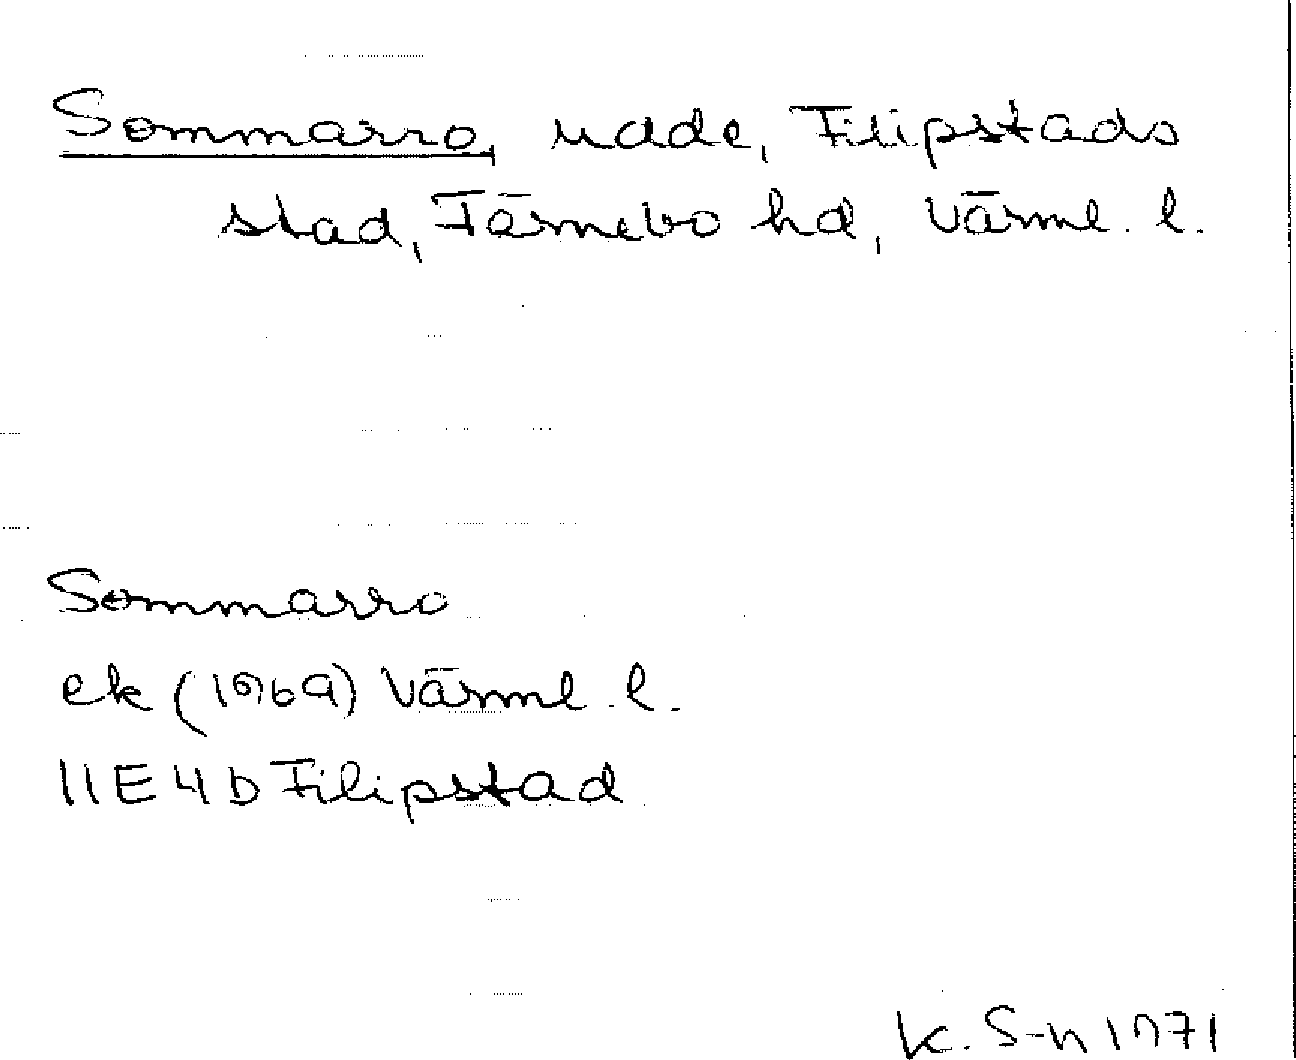 Sommarro, udde, Filipstads
stad, Färnebo hd, Värml. l.
Sommarro
ek (1969) Värml. l.
11E4b Filipstad
K. S-n 1971